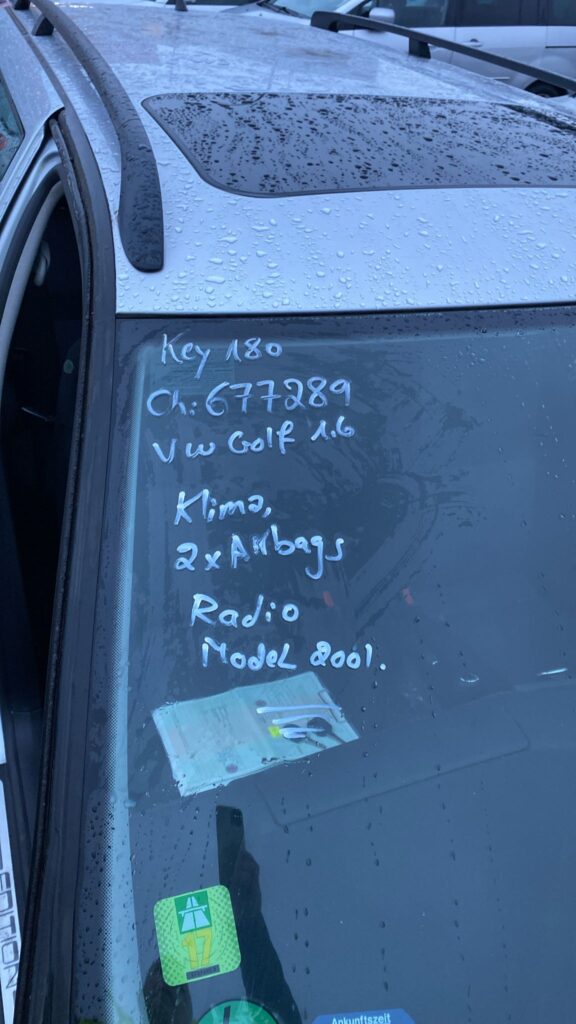 Key 180
Ch: 677289
VW Golf 1.6
Klima,
2x Airbags
Radio
Model 2001.
17
Ankunftszeit
EDITION